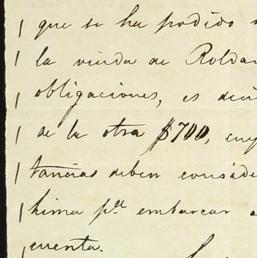 que se ha podido
la viuda de Roldan
obligaciones, es deci
de la otra $700, cuy
tancias deben conside
hima pª embarcar a
cuenta.